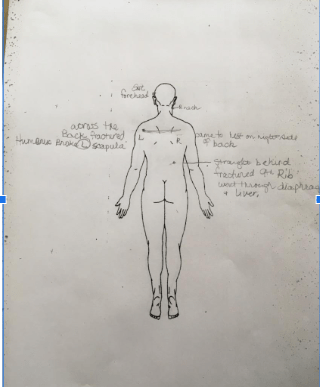 Exit
forehead
across the
Back fractured
Humerus Broke (L) scapula
L
R
came to rest on upper side
of back
behind
fractured 9th Rib
went through diaphragm
& Liver.